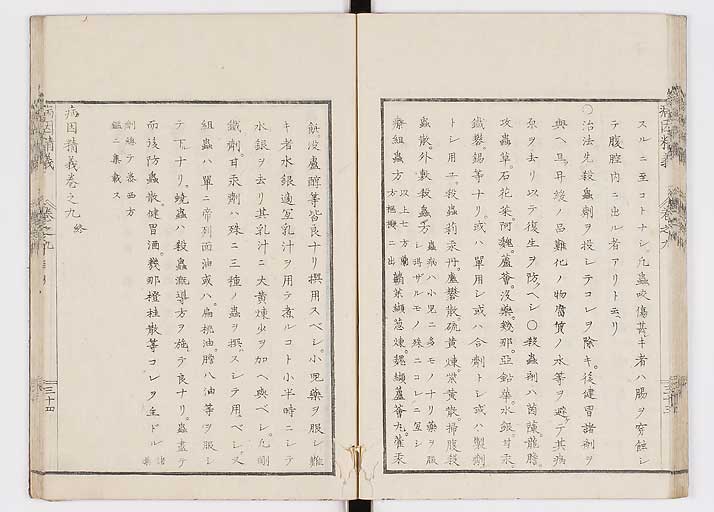 スルニ至コトナシ。凡蟲咬傷甚キ者ハ腸ヲ穿蝕シ
テ腹腔内ニ出ル者アリト云リ
〇治法先殺蟲劑ヲ投シテコレヲ除キ。後健胃諸劑ヲ
與ヘ且 ノ品難化ノ物腐質ノ水等ヲ避テ其病
泉ヲ去リ以テ復生ヲ防ベシ〇殺蟲劑ハ茵蔯。龍膽。
攻蟲草。石花菜。阿魏。蘆薈。沒藥。幾那。亞鉛華。水銀。甘汞。
鐵礬。錫等ナリ。或ハ單用シ或ハ合劑トシ或ハ製劑
トシ用ユ。殺蟲莉汞丹。蘆礬散。硫黄煉。 黄散。掃腹殺
蟲散。外敷殺蟲方。蟲病ハ小児ニ多キモノナリ藥ヲ服
シ得ザルモノ殊ニコレニ宜シ
療組蟲方 以上七方
方 ニ出 纈草纈葱煉。魏纈蘆薈丸。 汞
觚沒蘆醇等皆良ナリ撰用スベシ。小児藥ヲ服シ難
キ者水銀適宜乳汁ヲ用テ煮ルコト小半時ニシテ
水銀ヲ去リ其乳汁ニ大黄煉少ヲ加ヘ與ベシ。凡剛
鐵劑。甘汞劑ハ殊ニ三種ノ蟲ヲ撰スシテ用ベシ。又
組蟲ハ單ニ帝列面油或ハ扁桃油。膽八油等ヲ服シ
テ下ナリ。蟯蟲ハ殺蟲漑導方ヲ施テ良ナリ。蟲盡テ
而後防蟲散。健胃酒。幾那橙桂散等コレヲ主ドル 諸
藥
劑總テ 西方
鑑ニ集載ス
病因精義卷之九 終
病因精義 卷之九 三十三
病因精義 卷之九 三十四